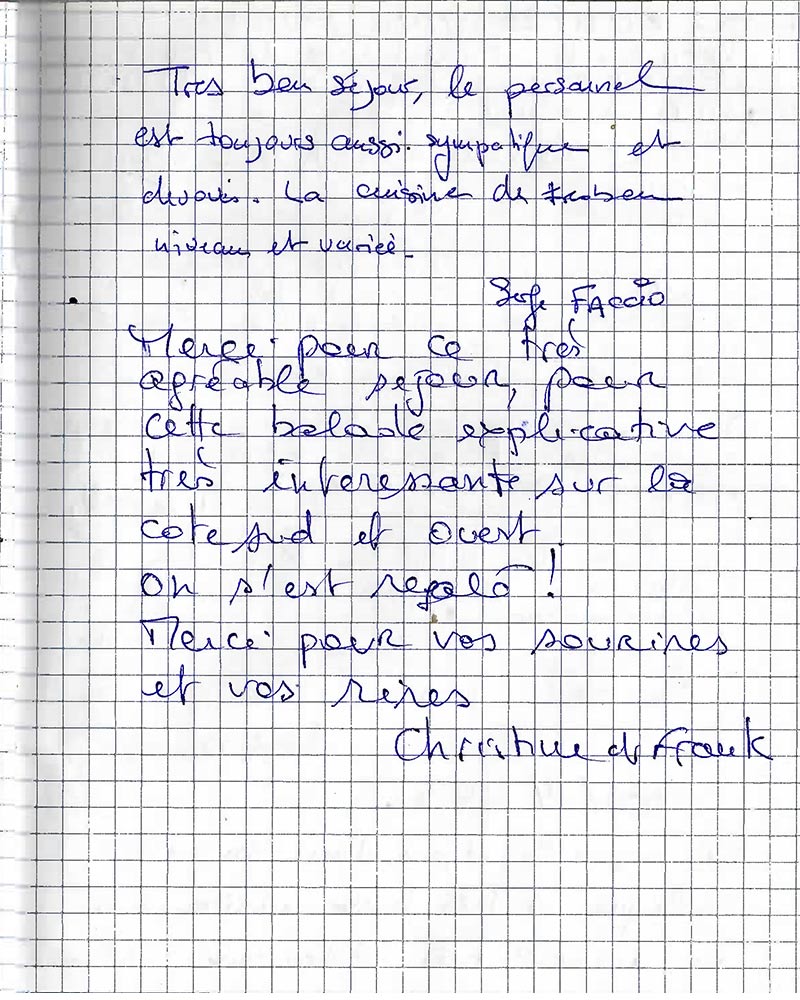 Tres bon séjour, le personnel
est toujours aussi sympatique et
devoués. La cuisine de tres bon
niveau et variée.
Serge FACCIO
Merci pour ce très
agréable sejour, pour
cette balade explicative
très interessante sur la
cote sud et ouest.
On s'est regalé !
Merci pour vos sourires
et vos rires
Christine et Franck